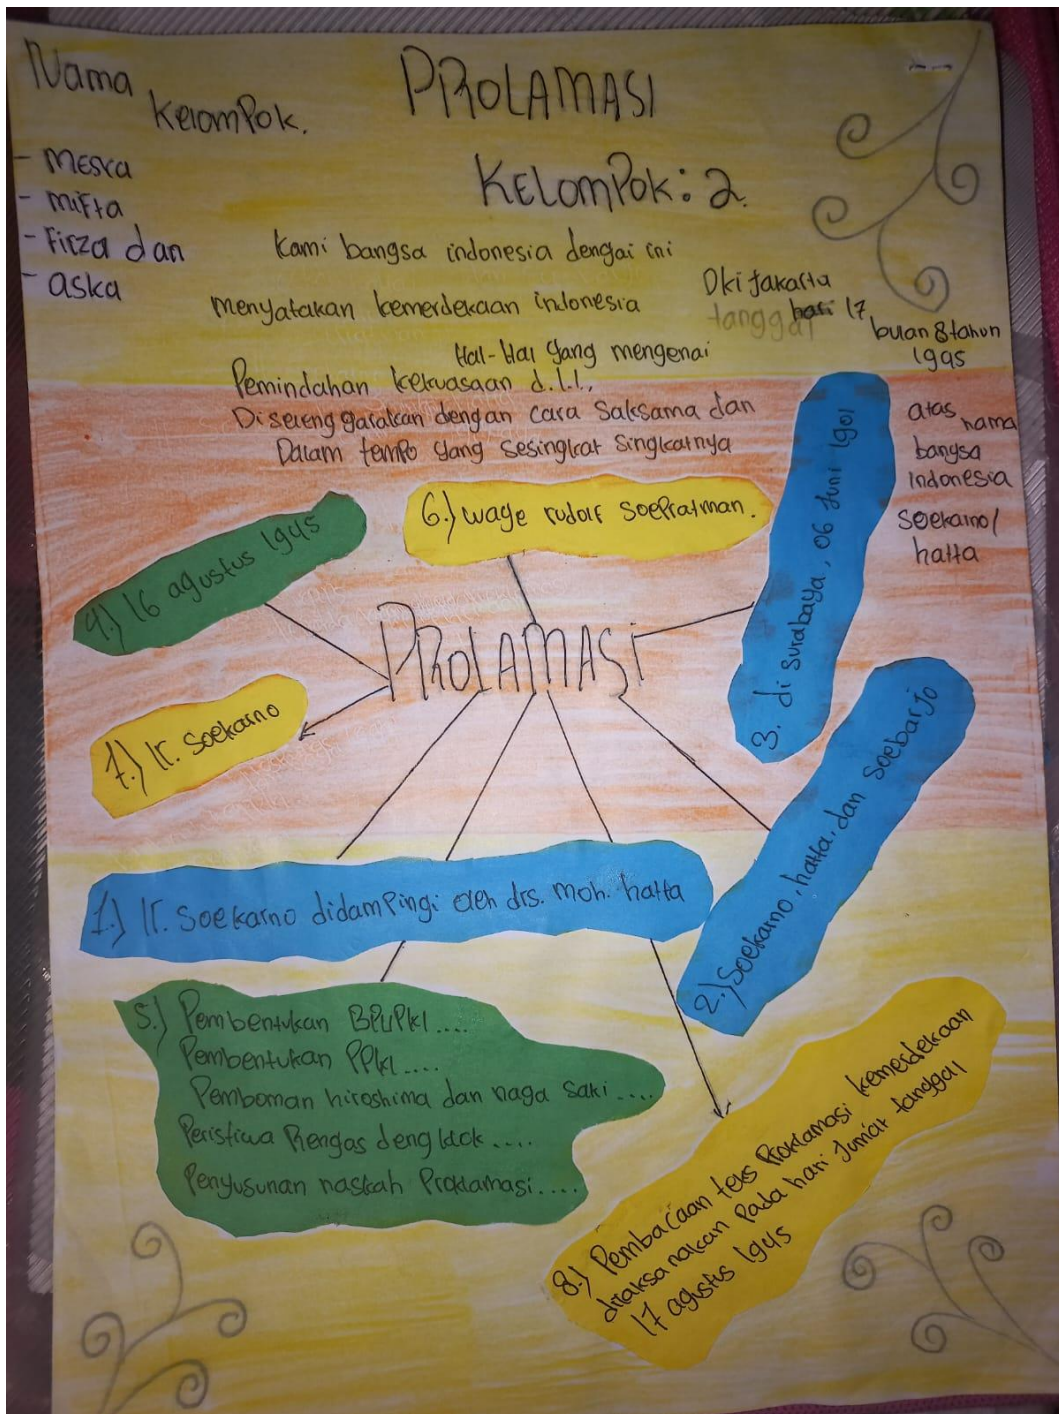 Nama
Kelompok.
- Meska
- Mifta
- Firza dan
- aska
PROLAMASI
KELOMPOK: 2.
Kami bangsa indonesia dengai ini
menyatakan kemerdekaan indonesia
Hal-Hal yang mengenai
Pemindahan kekuasaan d.l.l.,
Diselenggarakan dengan cara saksama dan
Dalam tempo yang sesingkat singkatnya
Dki jakarta
tanggal hari 17
buan 8 tahun
1945
atas nama
bangsa
indonesia
soekarno/
hatta
4.) 16 agustus 1945
6.) wage rudolf soepratman.
3. di surabaya, 06 Juni 1901
PROLAMASI
7.) Ir. Soekarno
2.) Soekarno, hatta, dan soebarjo
1.) Ir. Soekarno didampingi oleh drs. moh. hatta
5.) Pembentukan BPUPKI....
Pembentukan PPKI....
Pemboman hiroshima dan naga saki....
Peristiwa Rengas dengklok....
Penyusunan naskah Proklamasi....
8.) Pembacaan teks Proklamasi kemerdekaan
dilaksanakan Pada hari Jum'at tanggal
17 agustus 1945